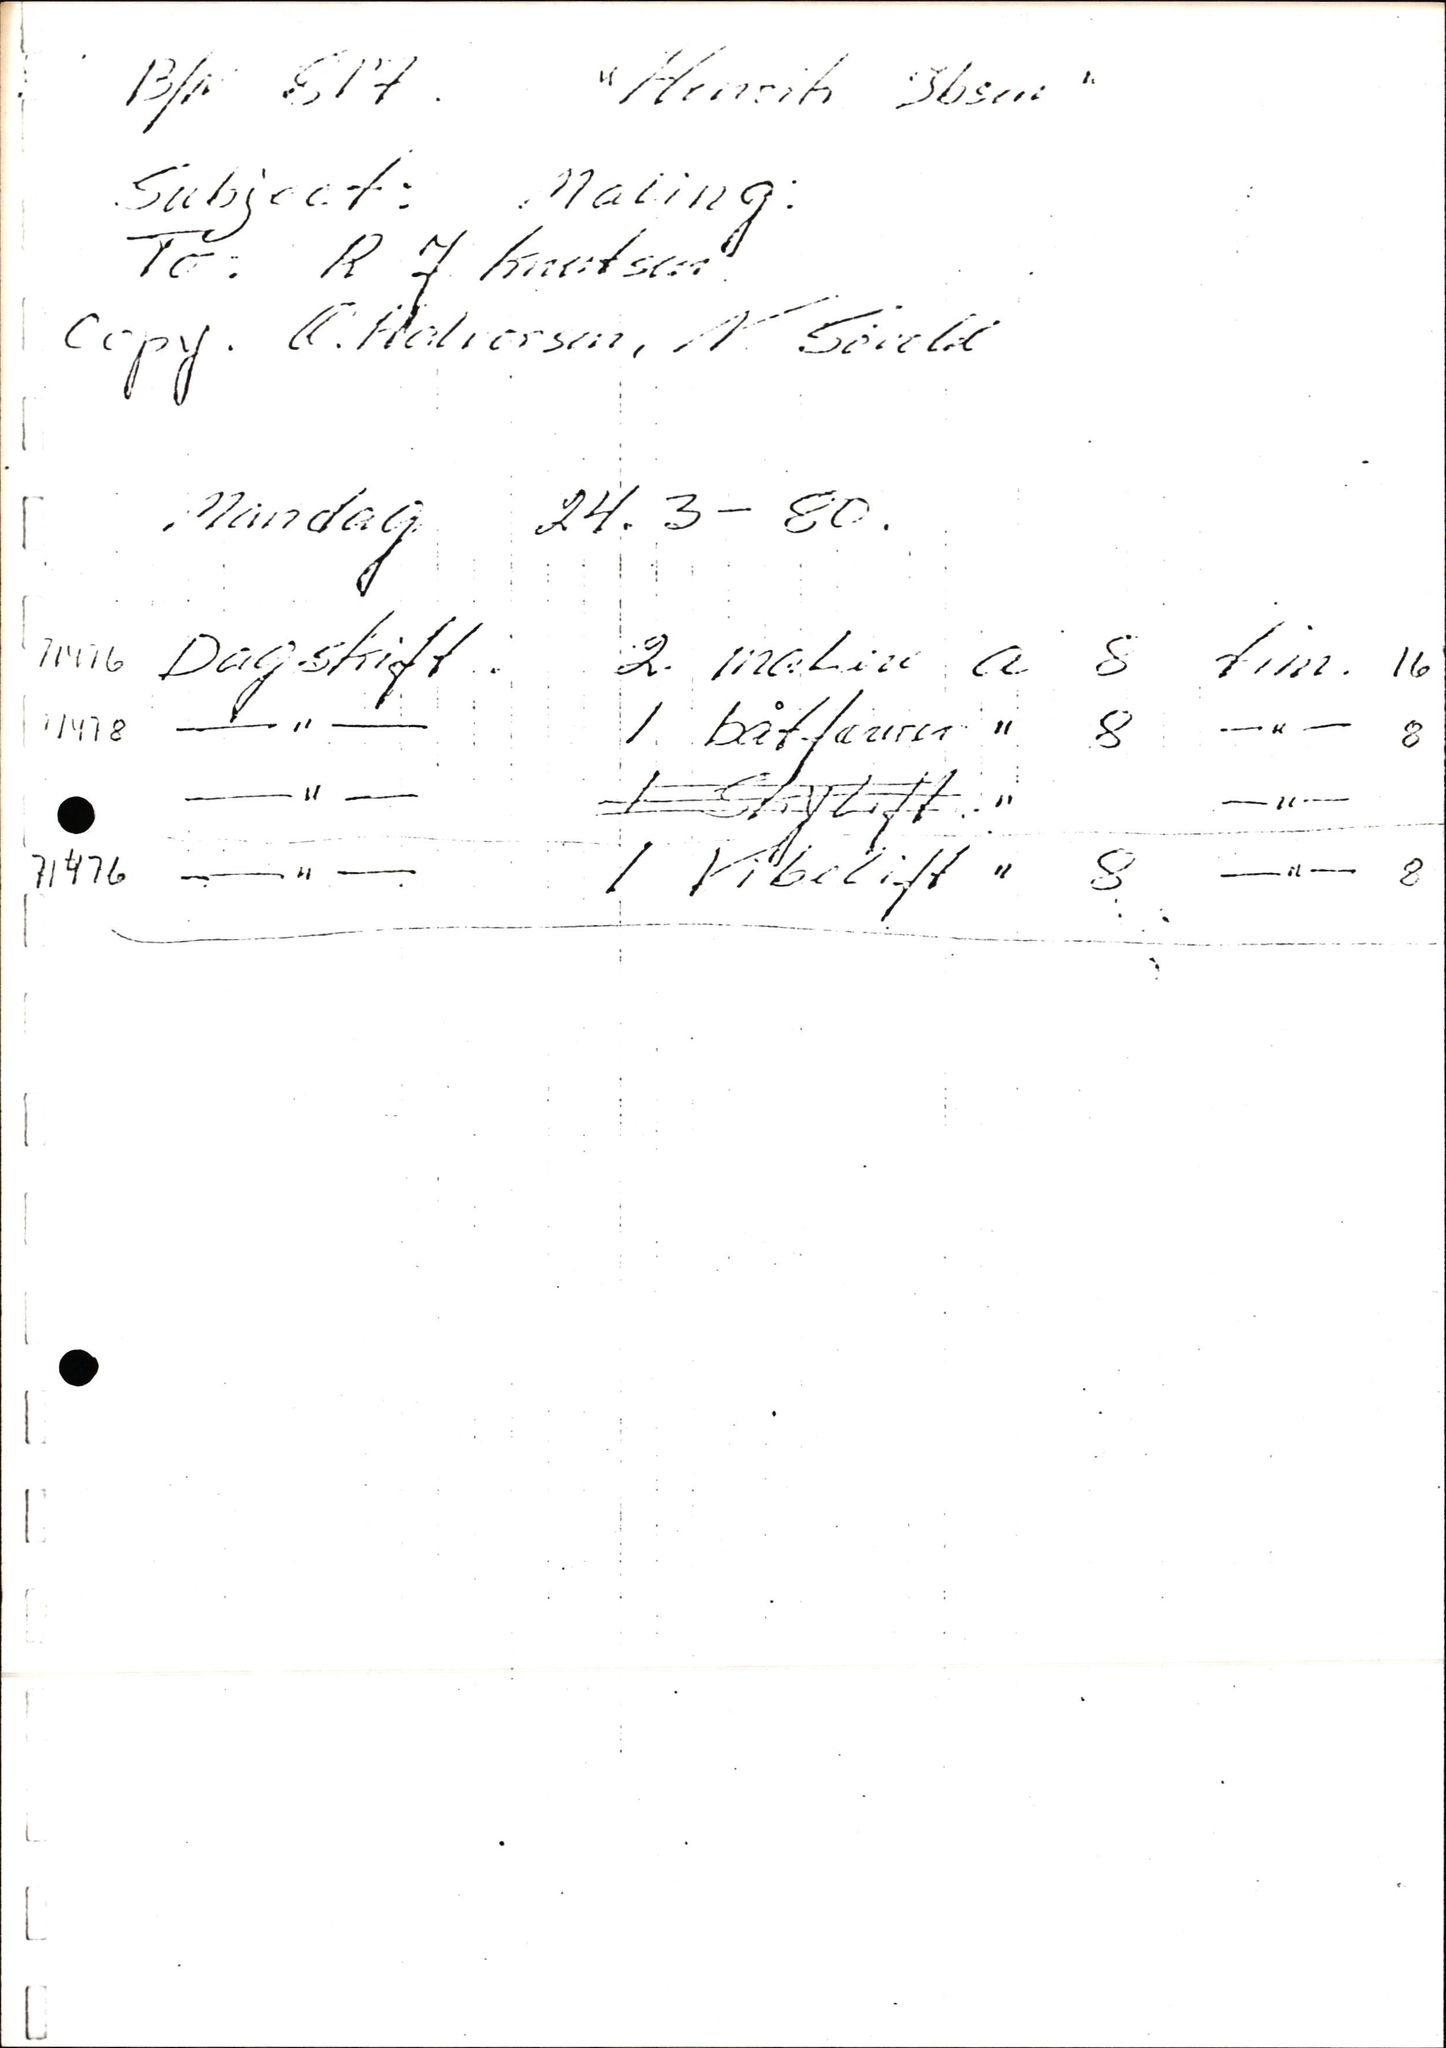 B/N 517. "Henrik Ibsen"
Subject: Maling:
To: R J Knutsen
Copy. A. Halvorsen, N.
Mandag 24. 3 - 80.
71476 Dagskift. 2. malere a 8 tim. 16
71478 — " — 1 båtfører " 8 — " — 8
— " — 1 Skylift. " — " —
71476 — " — 1 Vibelift " 8 — " — 8